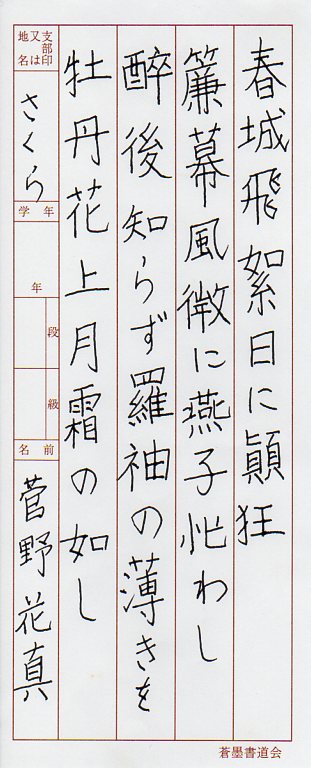 春城飛絮日に顛狂
簾幕風微に燕子忙わし
酔後知らず羅袖の薄きを
牡丹花上月霜の如し
支部印
又は
地名
さくら
学年
年
段
級
名前
菅野花真
蒼墨書道会